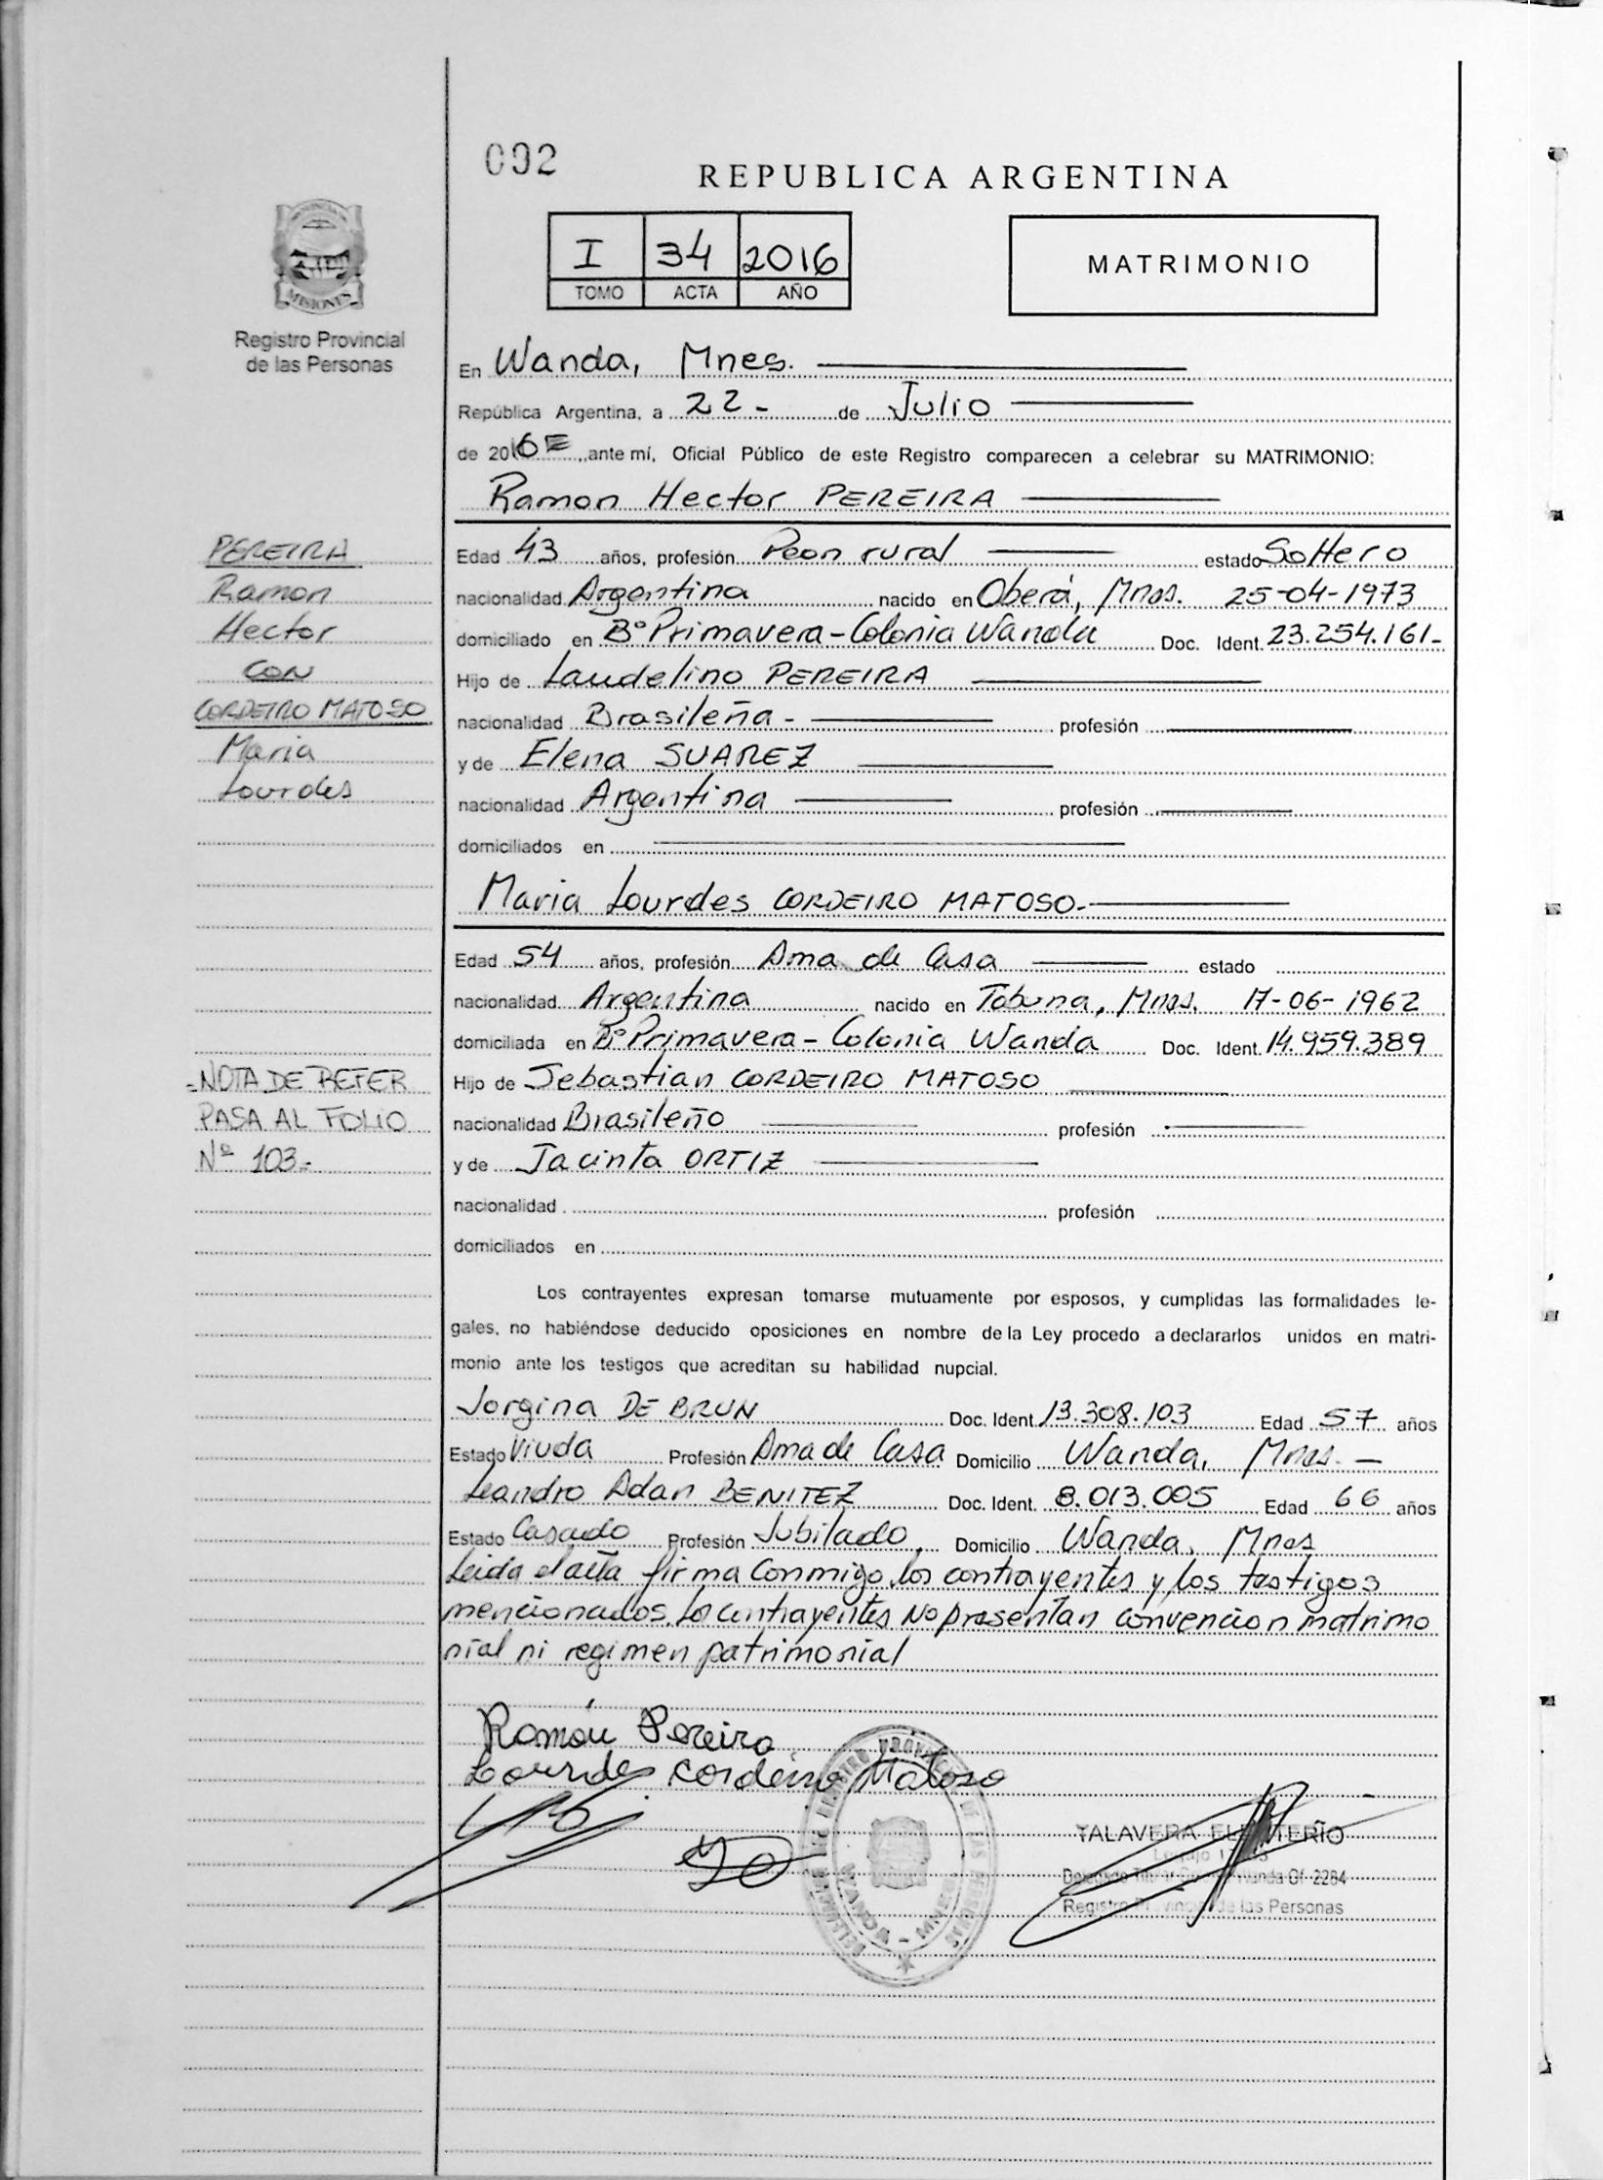 092
REPUBLICA ARGENTINA
I 34 2016
TOMO ACTA AÑO
MATRIMONIO
MISIONES
Registro Provincial
de las Personas
En Wanda, Mnes.
República Argentina, a 22- de Julio
de 2016 ante mí, Oficial Público de este Registro comparecen a celebrar su MATRIMONIO:
Ramon Hector PEREIRA
PEREIRA
Ramon
Hector
CON
CORDEIRO MATOSO
Maria
Lourdes
Edad 43 años, profesión Peon rural estado Soltero
nacionalidad Argentina nacido en Oberá, Mnes. 25-04-1973
domiciliado en B° Primavera-Colonia Wanda Doc. Ident. 23.254.161-
Hijo de Laudelino PEREIRA
nacionalidad Brasileña- profesión
y de Elena SUAREZ
nacionalidad Argentina profesión
domiciliados en
Maria Lourdes CORDEIRO MATOSO-
Edad 54 años, profesión Ama de Casa estado
nacionalidad Argentina nacido en Tobuna, Mnes. 17-06-1962
domiciliada en B° Primavera-Colonia Wanda Doc. Ident. 14.959.389
Hijo de Sebastian CORDEIRO MATOSO
nacionalidad Brasileño profesión
y de Jacinta ORTIZ
nacionalidad profesión
domiciliados en
-NOTA DE REFER
PASA AL FOLIO
Nº 103-
Los contrayentes expresan tomarse mutuamente por esposos, y cumplidas las formalidades le-
gales, no habiéndose deducido oposiciones en nombre de la Ley procedo a declararlos unidos en matri-
monio ante los testigos que acreditan su habilidad nupcial.
Jorgina DE BRUN Doc. Ident. 13.308.103 Edad 57 años
Estado Viuda Profesión Ama de Casa Domicilio Wanda, Mnes.-
Leandro Adan BENITEZ Doc. Ident. 8.013.005 Edad 66 años
Estado Casado Profesión Jubilado, Domicilio Wanda, Mnes
Leida el acta firma conmigo los contrayentes y los testigos
mencionados. Lo contrayentes No presentan convencion matrimo
nial ni regimen patrimonial
Ramón Pereira
Lourdes Cordeiro Matoso
TALAVERA ELEUTERIO
Wanda Of. 2284
Registro Provincial de las Personas
WANDA - MNES